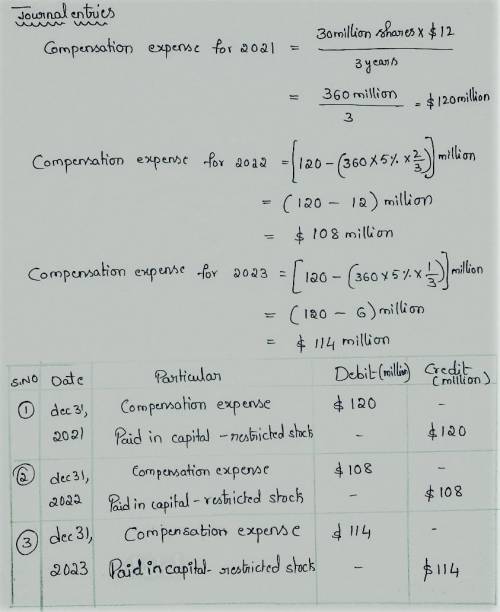 Journal entries
Compensation expense for 2021 = 30million shares x $12 / 3 years
= 360 million / 3 = $120million
Compensation expense for 2022 = [120 - (360 x 5% x 2/3)] million
= (120 - 12) million
= $ 108 million
Compensation expense for 2023 = [120 - (360 x 5% x 1/3)] million
= (120 - 6) million
= $ 114 million
S.NO Date Particular Debit (million) Credit (million)
① dec 31, Compensation expense $ 120 -
2021 Paid in capital - restricted stock - $120
② dec 31, Compensation expense $108 -
2022 Paid in capital - restricted stock - $108
③ dec 31, Compensation expense $ 114 -
2023 Paid in capital - restricted stock - $114